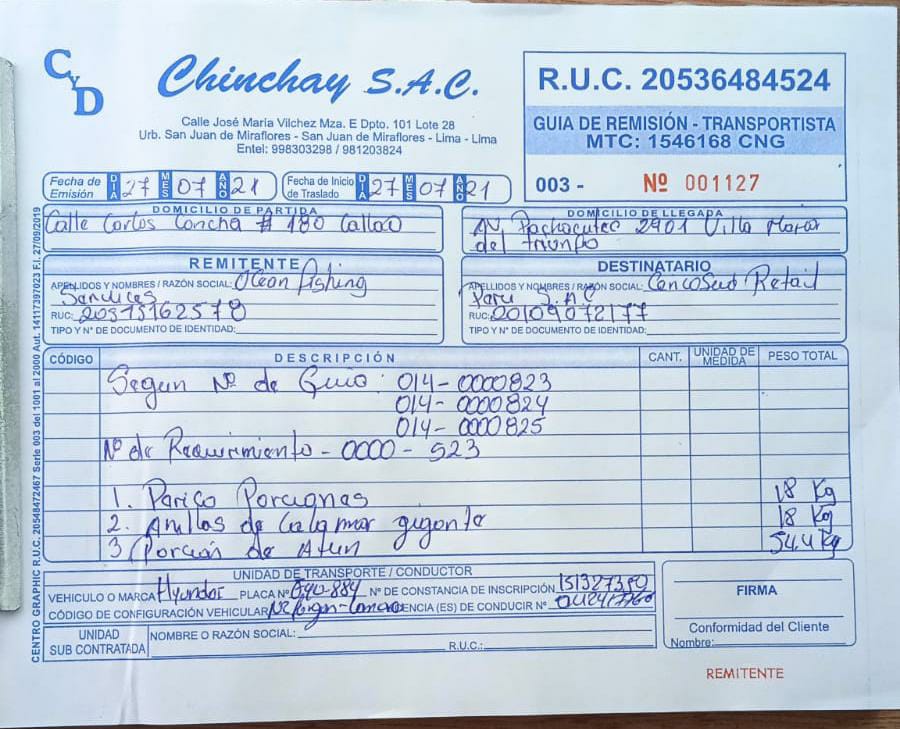 CyD
Chinchay S.A.C.
Calle José María Vilchez Mza. E Dpto. 101 Lote 28
Urb. San Juan de Miraflores - San Juan de Miraflores - Lima - Lima
Entel: 998303298 / 981203824
R.U.C. 20536484524
GUIA DE REMISIÓN - TRANSPORTISTA
MTC: 1546168 CNG
003 - Nº 001127
Fecha de Emisión DIA 27 MES 07 AÑO 21
Fecha de Inicio de Traslado DIA 27 MES 07 AÑO 21
DOMICILIO DE PARTIDA
Calle Carlos Concha # 180 Callao
DOMICILIO DE LLEGADA
AV. Pachacutec 2901 Villa Maria
del triunfo
REMITENTE
APELLIDOS Y NOMBRES / RAZÓN SOCIAL: Ocean Fishing
RUC: 20515162578
TIPO Y N° DE DOCUMENTO DE IDENTIDAD:
DESTINATARIO
APELLIDOS Y NOMBRES / RAZÓN SOCIAL: Cencosud Retail
Peru S.AC
RUC: 20109072177
TIPO Y N° DE DOCUMENTO DE IDENTIDAD:
CÓDIGO DESCRIPCIÓN CANT. UNIDAD DE MEDIDA PESO TOTAL
Segun Nº de Guia: 014-0000823
014-0000824
014-0000825
Nº de Requirimiento - 0000 - 523
1. Porciones 18 Kg
2. Anillos de Calamar gigante 18 Kg
3 Porción de Atun 54.4 Kg
UNIDAD DE TRANSPORTE / CONDUCTOR
VEHICULO O MARCA Hyundai PLACA N° 884 N° DE CONSTANCIA DE INSCRIPCIÓN 151327380
CÓDIGO DE CONFIGURACIÓN VEHICULAR N2 ENCIA (ES) DE CONDUCIR N°
UNIDAD SUB CONTRATADA
NOMBRE O RAZÓN SOCIAL:
R.U.C.:
FIRMA
Conformidad del Cliente
Nombre:
REMITENTE
CENTRO GRAPHIC R.U.C. 20548472467 Serie 003 del 1001 al 2000 Aut. 14117397023 F.I. 27/09/2019